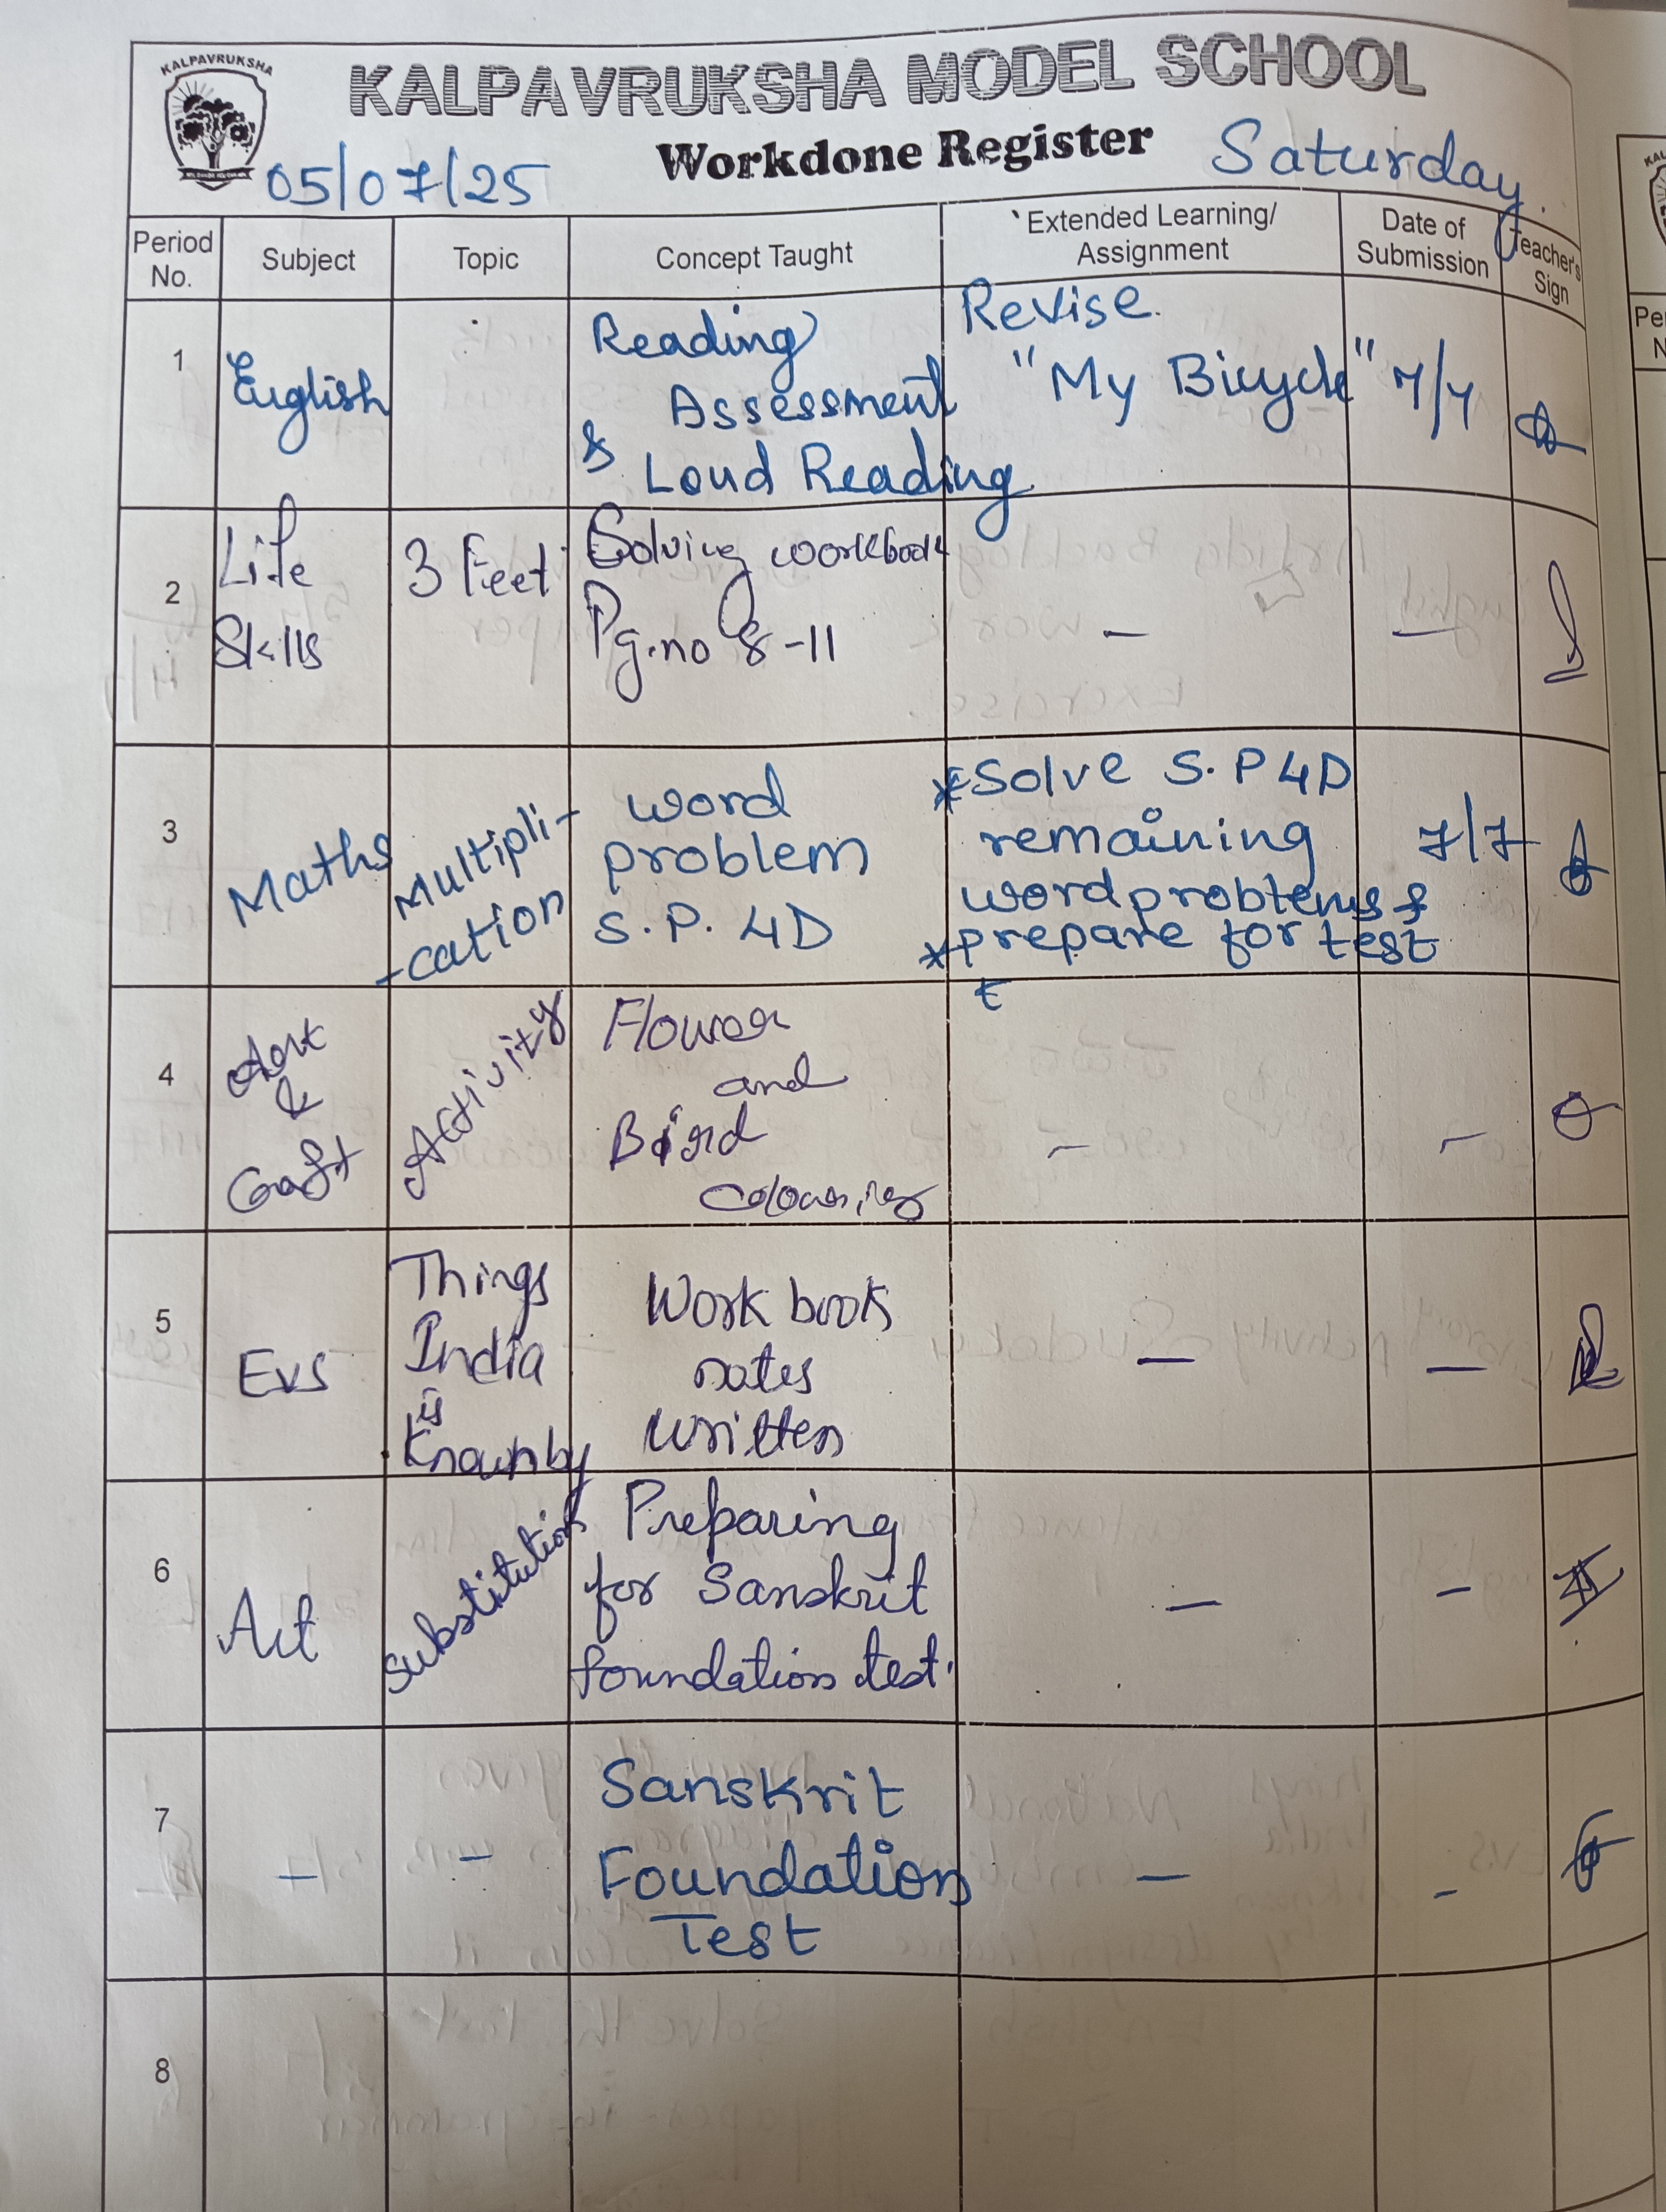 KALPAVRUKSHA
KALPAVRUKSHA MODEL SCHOOL
Workdone Register
Saturday.
05/07/25
Period No.
Subject
Topic
Concept Taught
Extended Learning/
Assignment
Date of
Submission
Teacher's
Sign
1
English
Reading
Assessment
& Loud Reading
Revise.
"My Bicycle"
7/7
2
Life
Skills
3 Feet
Solving workbook
Pg.no 8-11
–
–
3
Maths
Multipli-
-cation
word
problem
S.P. 4D
*Solve S.P 4D
remaining
word problems &
*prepare for test
t
7/7
4
Art
&
Craft
Activity
Flower
and
Bird
colouring
–
–
5
EVS
Things
India
is
Known by
Work book
notes
written
–
–
6
Art
Substitution
Preparing
for Sanskrit
foundation test.
–
–
7
–
–
Sanskrit
Foundation
Test
–
–
8